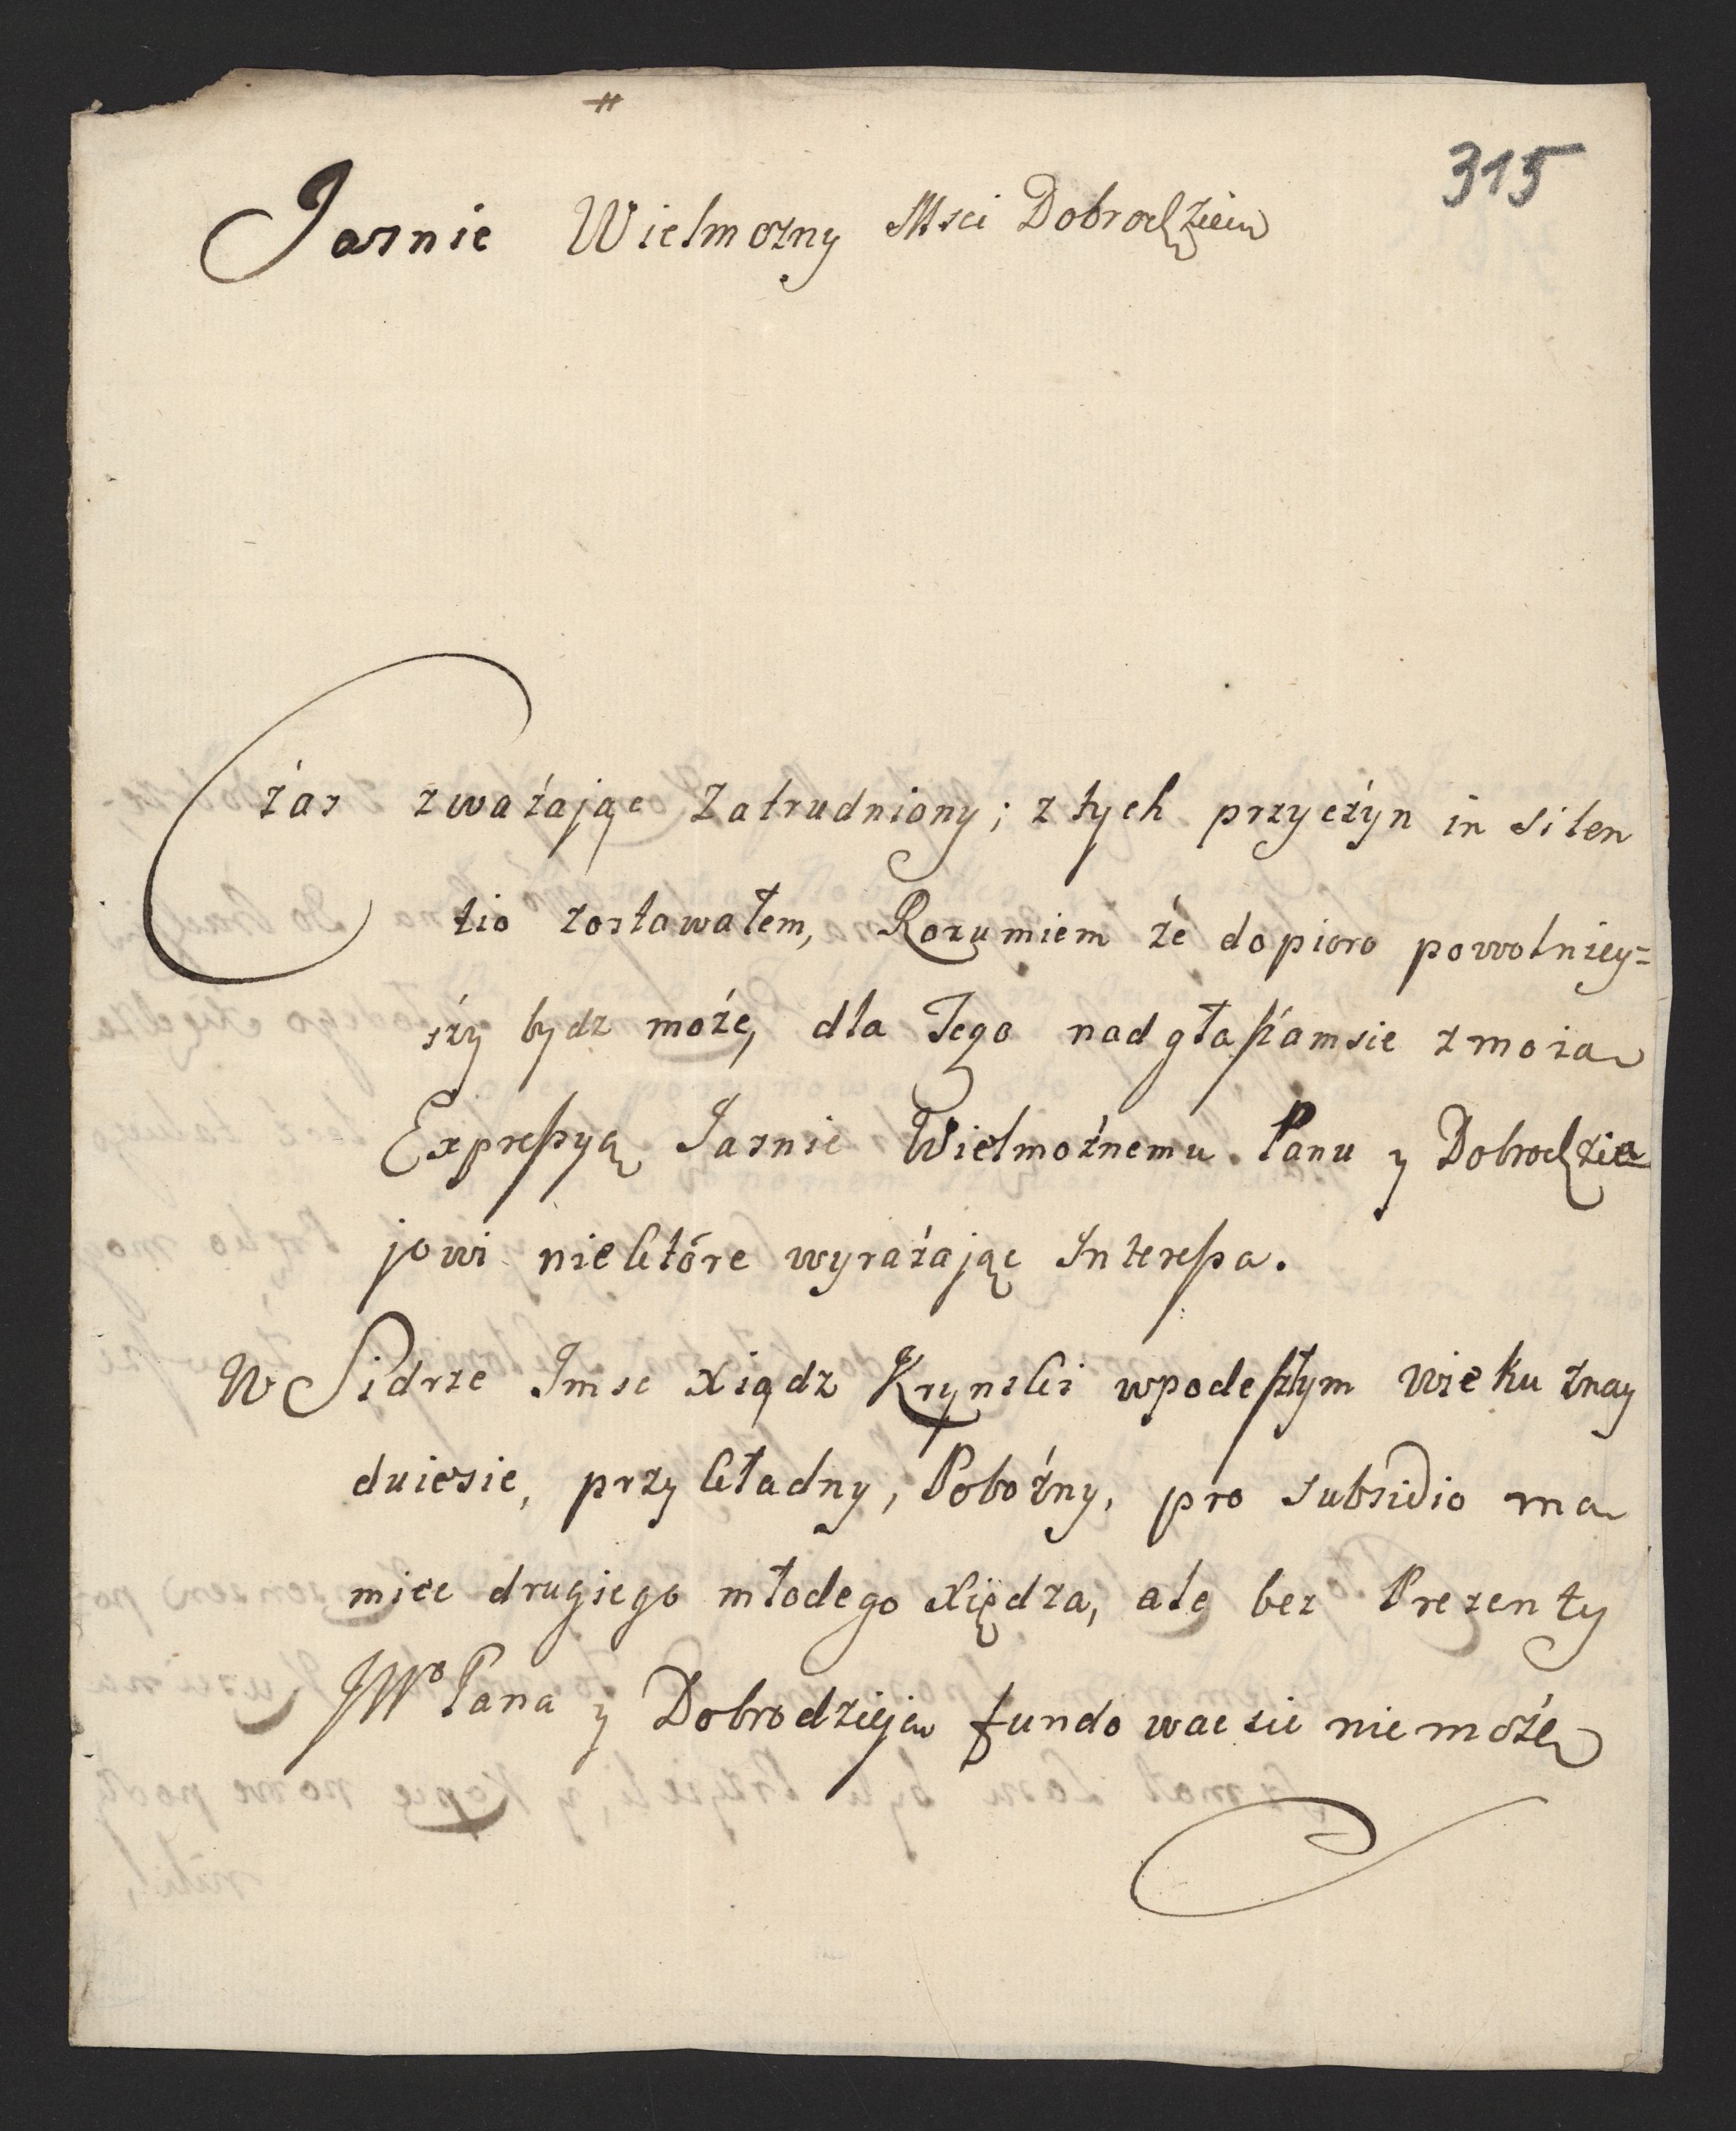 315
Jasnie Wielmozny Msci Dobrodzieiu
Czas zwaźając Zatrudniony; z tych przyczyn in silen
tio zostawałem, Rozumiem źe dopioro powolniey=
szy bydz moźe, dla Tego nadgłaszamsie z moia
Expressyą Jasnie Wielmoźnemu Panu y Dobrodzie
jowi niektóre wyraźając Interessa.
W Sidrze Jmsc Xiądz Krynski wpodeszłym wieku znay
duiesie, przykładny, Poboźny, pro subsidio ma
miec drugiego młodego Xiędza, ale bez Prezenty
JWo Pana y Dobrodzieja fundowac sie niemoźe